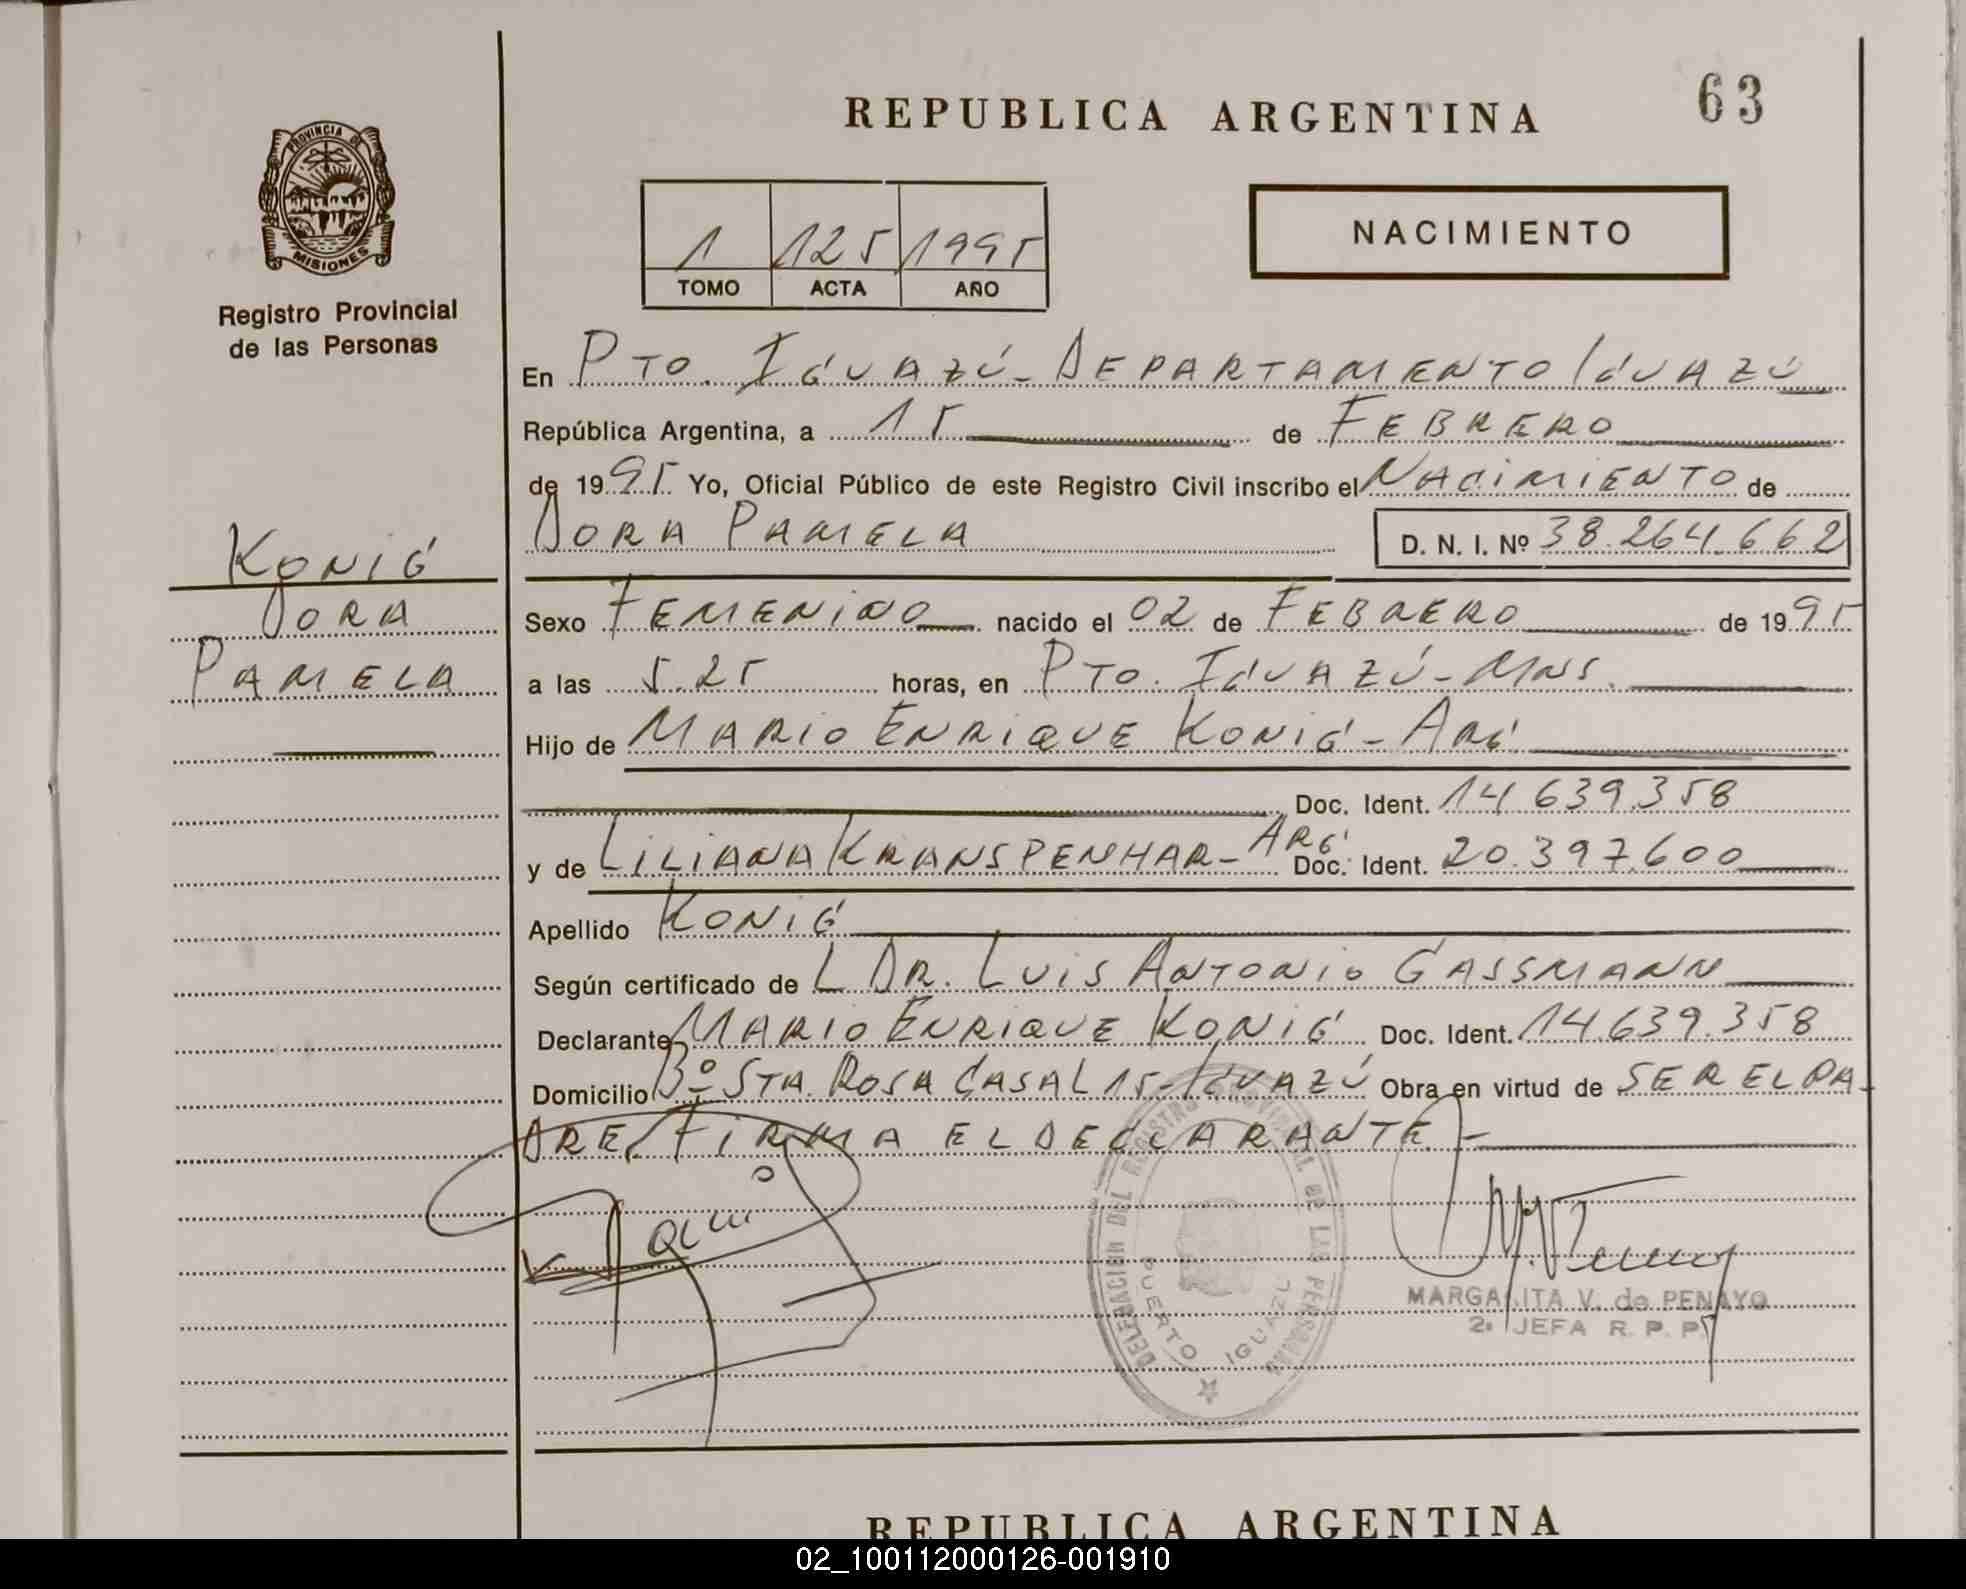 REPUBLICA ARGENTINA
63
PROVINCIA DE
MISIONES
Registro Provincial
de las Personas
1 125 1995
TOMO ACTA AÑO
NACIMIENTO
En PTO. IGUAZÚ - DEPARTAMENTO IGUAZÚ
República Argentina, a 15 de FEBRERO
de 1995 Yo, Oficial Público de este Registro Civil inscribo el NACIMIENTO de
DORA PAMELA D. N. I. Nº 38.264.662
KONIG
DORA
PAMELA
Sexo FEMENINO nacido el 02 de FEBRERO de 1995
a las 5.25 horas, en PTO. IGUAZÚ - MNS.
Hijo de MARIO ENRIQUE KONIG - ARG
Doc. Ident. 14.639.358
y de LILIANA KRANSPENHAR - ARG Doc. Ident. 20.397.600
Apellido KONIG
Según certificado de L DR. LUIS ANTONIO GASSMANN
Declarante MARIO ENRIQUE KONIG Doc. Ident. 14.639.358
Domicilio Bº STA. ROSA CASA L 15 - IGUAZÚ Obra en virtud de SER EL PA-
DRE/ FIRMA EL DECLARANTE -
DELEGACION DEL REGISTRO PROVINCIAL DE LAS PERSONAS
PUERTO IGUAZU
MARGARITA V. de PENAYO
2ª JEFA R. P. P.
REPUBLICA ARGENTINA
02_100112000126-001910